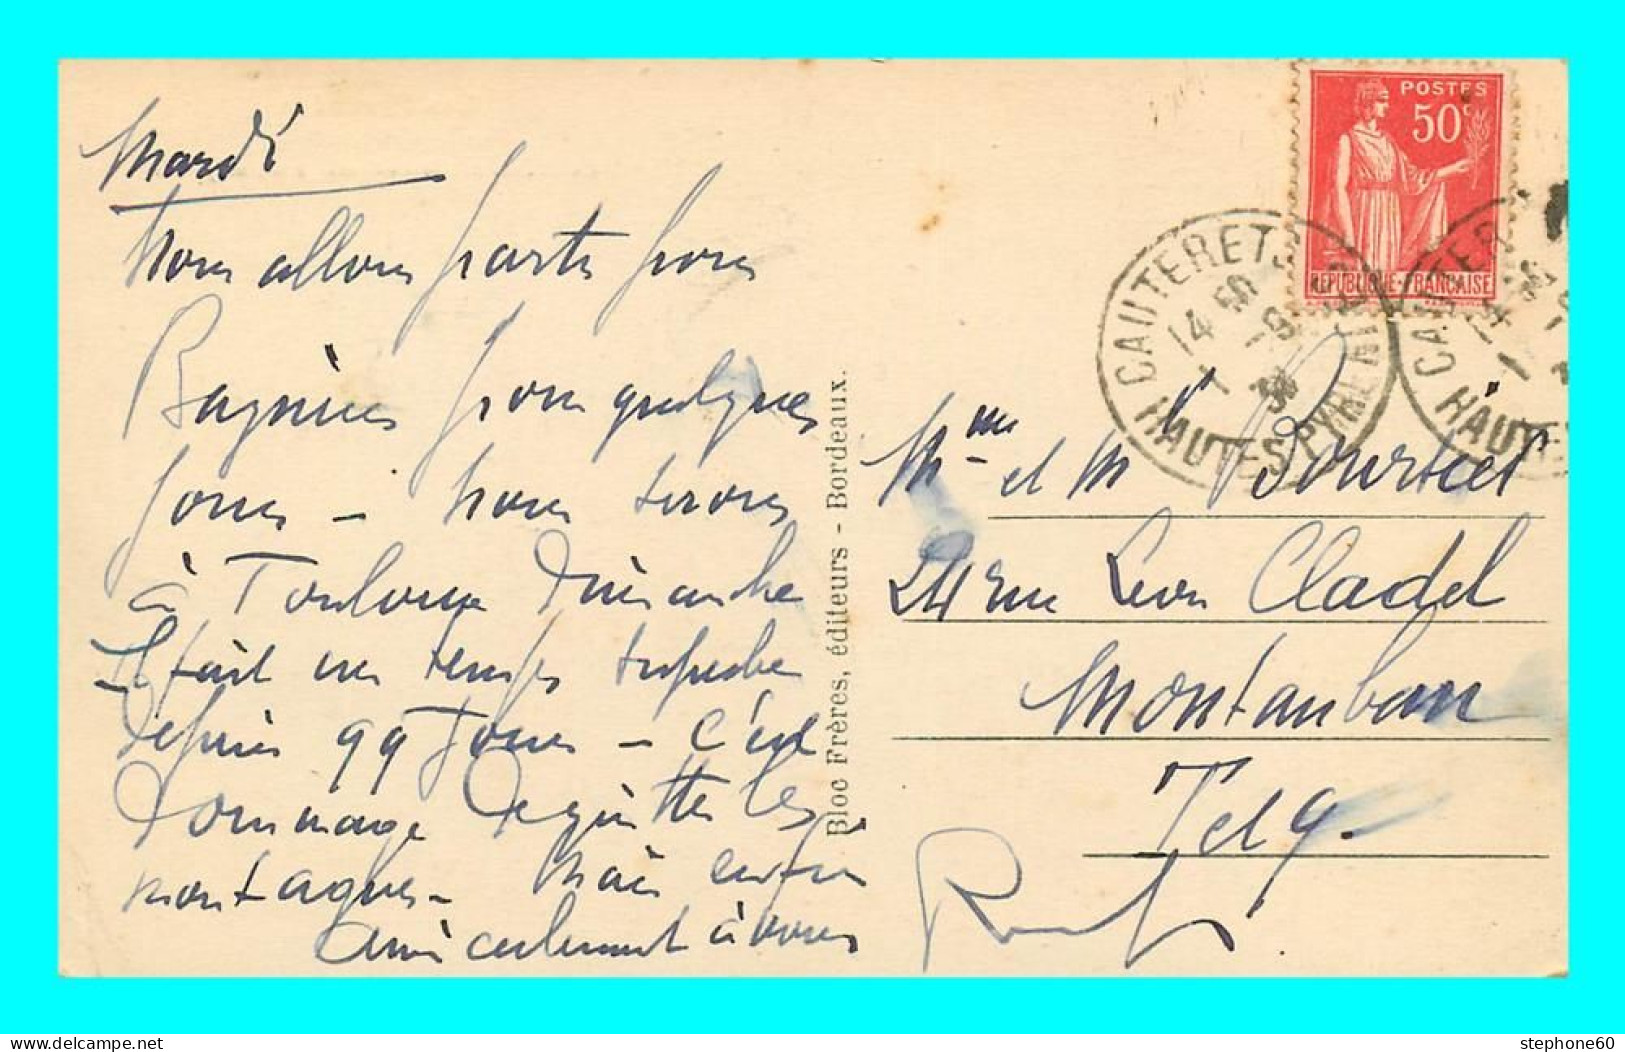 Mardi
Nous allons partir pour
Bagnères pour quelques
jours - Nous serons
à Toulouse Dimanche
Il fait un temps superbe
depuis qq jours - C'est
dommage de quitter les
montagnes - Mais enfin
Amicalement à vous
Bloc Frères, éditeurs - Bordeaux.
POSTES
50c
REPUBLIQUE FRANÇAISE
CAUTERETS
14 50
1 -9
HAUTES PYRENEES
CAUTERETS
HAUTES
Mme et Mr
24 rue Léon Cladel
Montauban
T et G.
stephone60